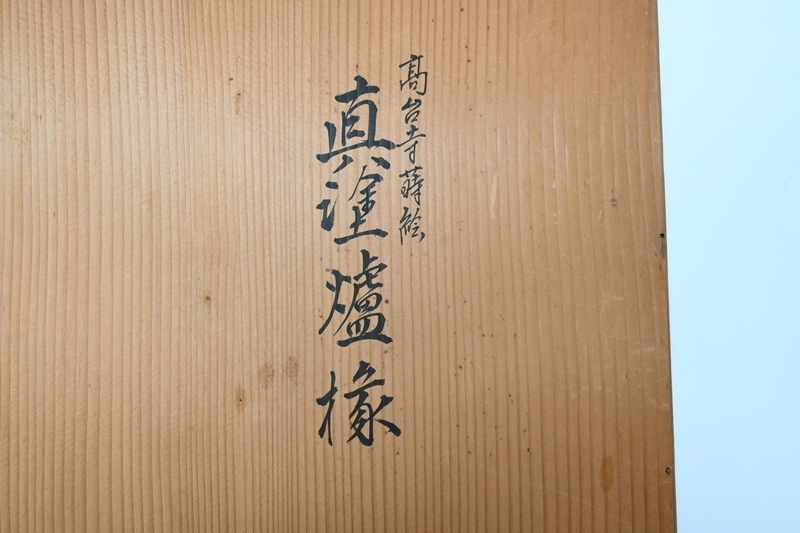 高台寺蒔絵
真塗爐椽